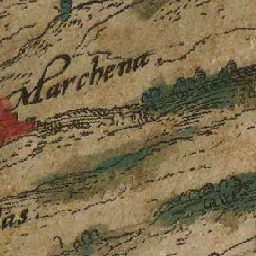 Marchena
las